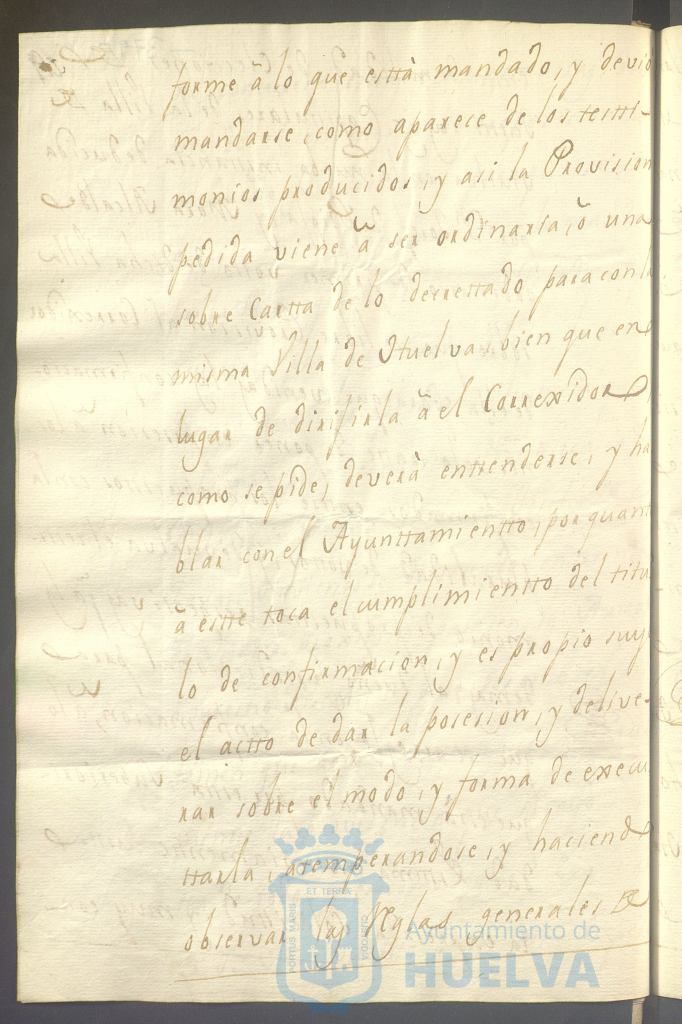 forme â lo que esttà mandado, y devio
mandarse, como aparece de los testti-
monios producidos, y asi la Provision
pedida viene â ser ordinaria, ô una
sobre Cartta de lo decrettado para con la
misma Villa de Huelva, bien que en
lugar de dirijirla â el Correxidor,
como se pide, deverà entenderse, y ha
blar con el Ayunttamientto, por quant
â estte toca el cumplimientto del titu
lo de confirmacion, y es propio suyo
el actto de dar la posesion, y delive-
rar sobre el modo, y forma de execu
ttarla, atemperandose, y haciendo
observar las Reglas generales de
Ayuntamiento de
HUELVA
PORTUS MARIS
ET TERRE
CUSTODIA